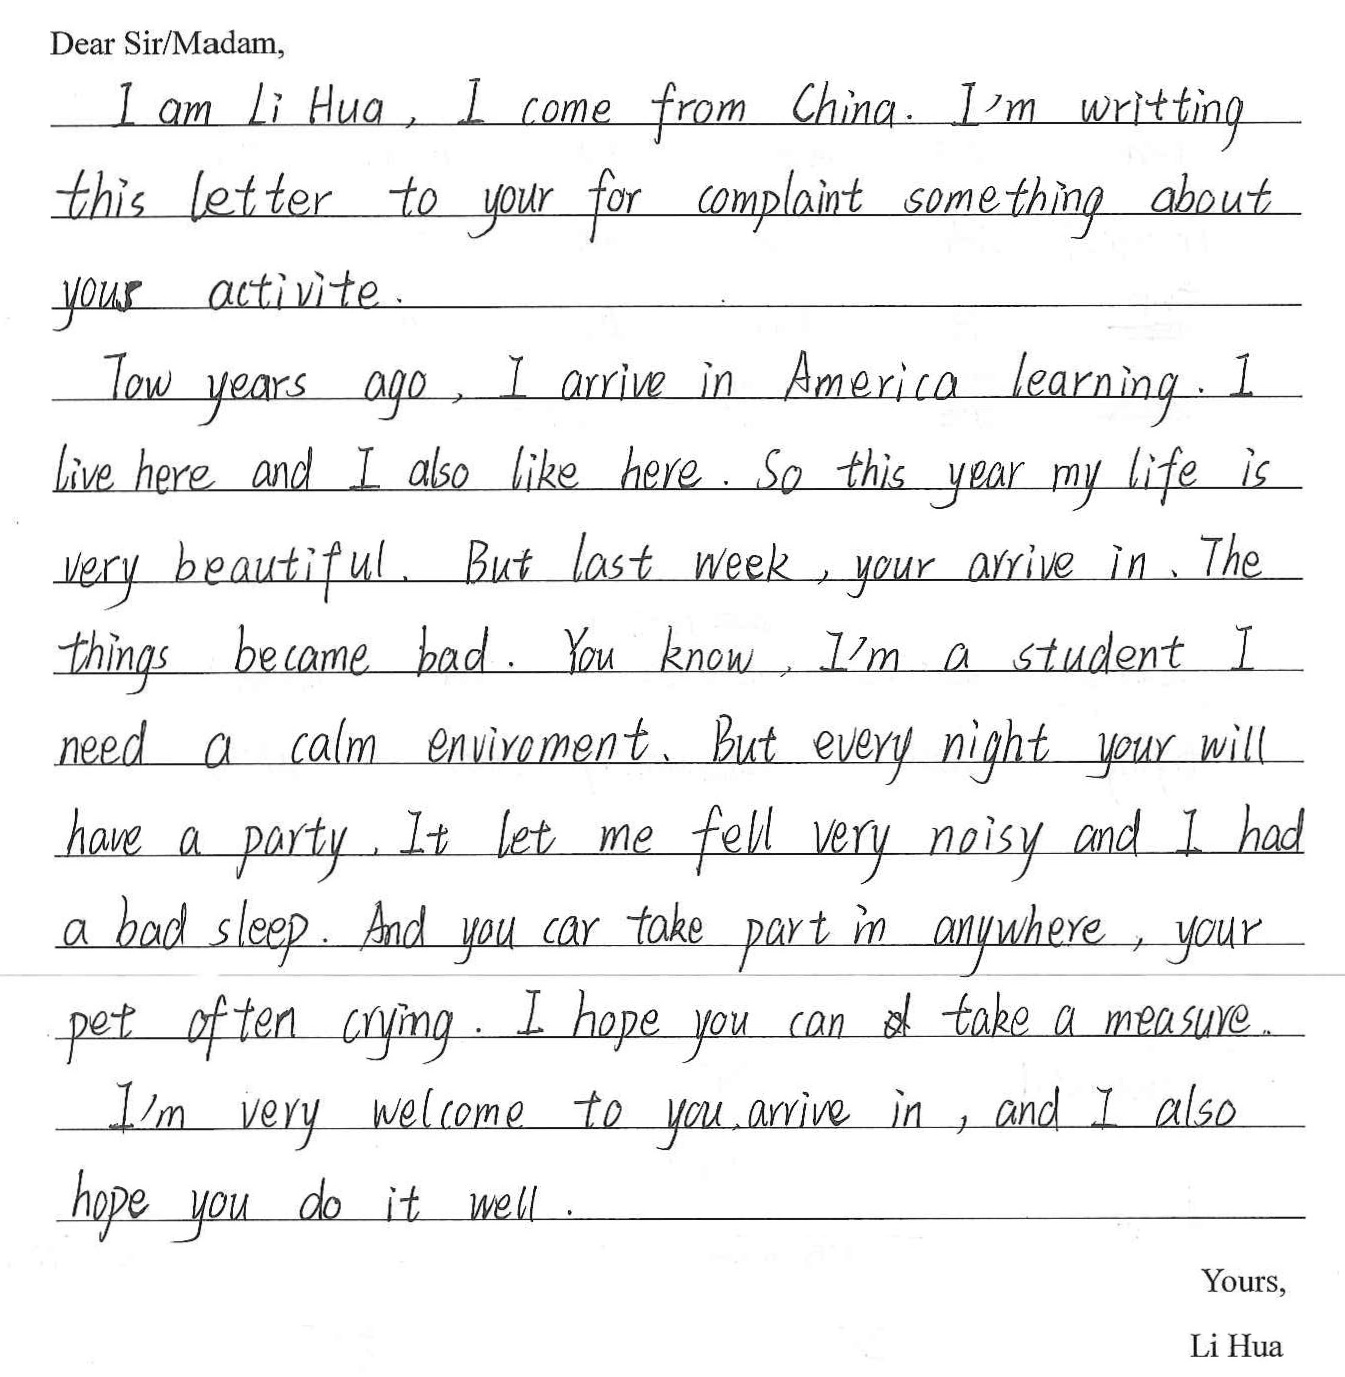 Dear Sir/Madam,
I am Li Hua, I come from China. I'm writting
this letter to your for complaint something about
your activite.
Tow years ago, I arrive in America learning. I
live here and I also like here. So this year my life is
very beautiful. But last week, your arrive in. The
things became bad. You know, I'm a student I
need a calm enviroment. But every night your will
have a party. It let me fell very noisy and I had
a bad sleep. And you car take part in anywhere, your
pet often crying. I hope you can take a measure.
I'm very welcome to you arrive in, and I also
hope you do it well.
Yours,
Li Hua